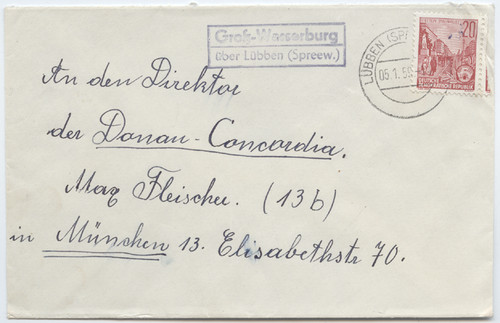 Groß-Wasserburg
über Lübben (Spreew.)
LÜBBEN (SPRE
05.1.58
20
DEUTSCHE
DEMOKRATISCHE REPUBLIK
An den Direktor
der Donau-Concordia.
Max Fleischer. (13b)
in München 13. Elisabethstr 70.